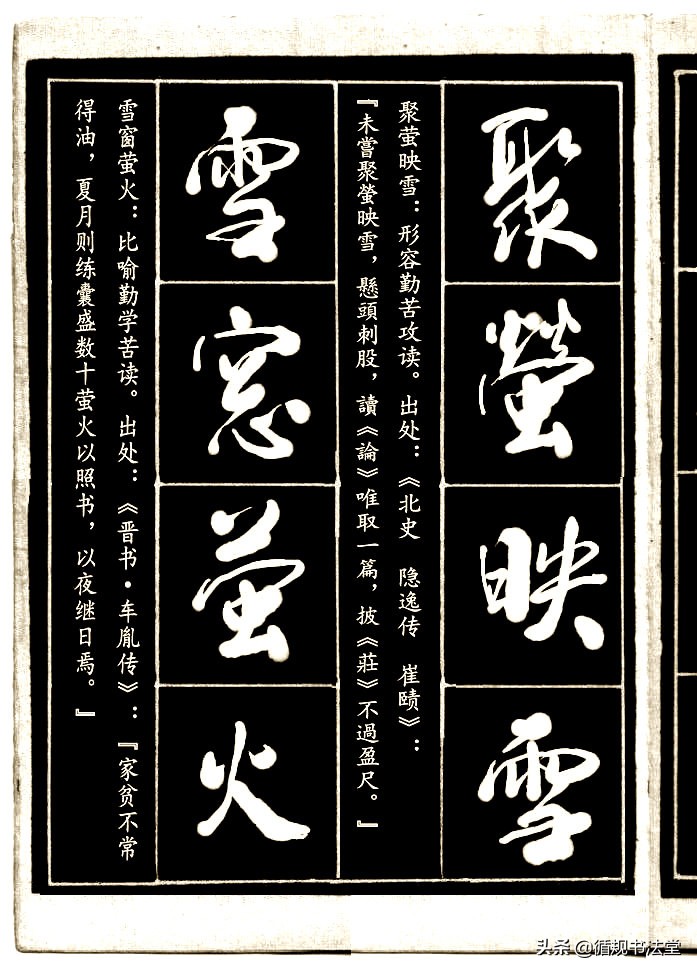 聚螢映雪
聚萤映雪：形容勤苦攻读。出处：《北史 隐逸传 崔赜》：
『未嘗聚螢映雪，懸頭刺股，讀《論》唯取一篇，披《莊》不過盈尺。』
雪窓萤火
雪窗萤火：比喻勤学苦读。出处：《晋书·车胤传》：『家贫不常
得油，夏月则练囊盛数十萤火以照书，以夜继日焉。』
头条 @循规书法堂